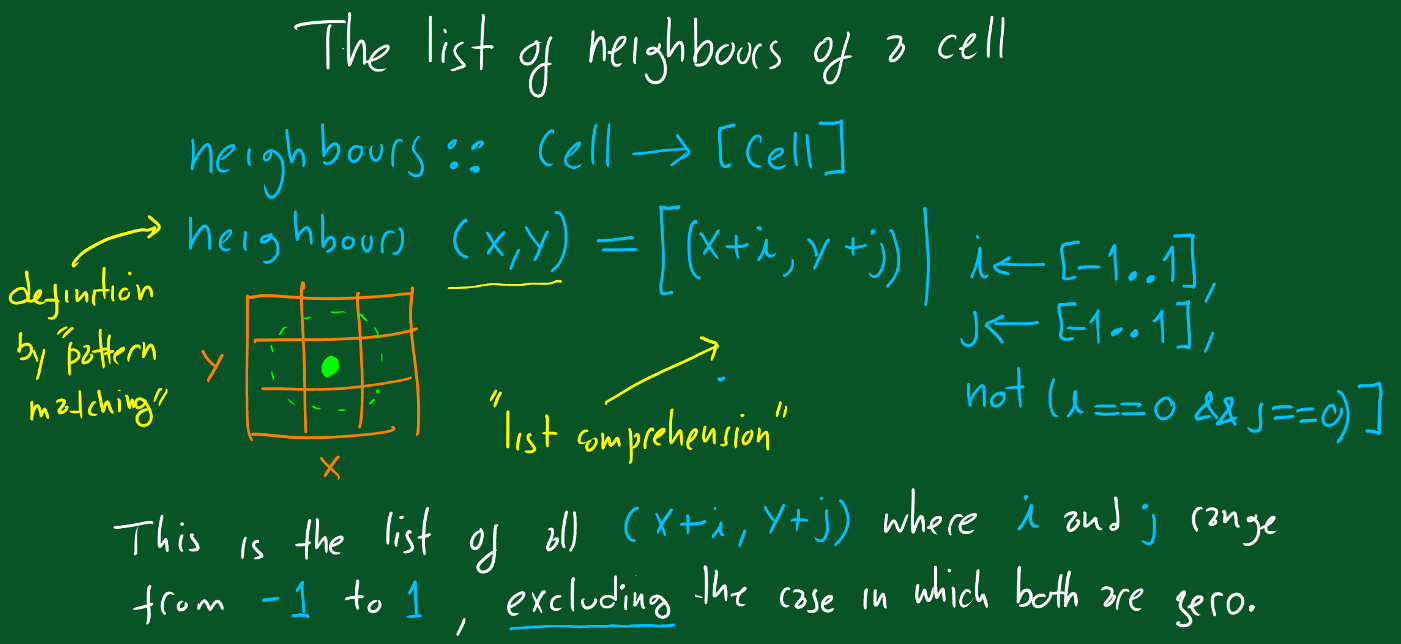 The list of neighbours of a cell
neighbours :: Cell → [Cell]
neighbours (x,y) = [(x+i, y+j) | i ← [-1..1],
j ← [-1..1],
not (i==0 && j==0)]
definition
by "pattern
matching"
y
x
"list comprehension"
This is the list of all (x+i, y+j) where i and j range
from -1 to 1, excluding the case in which both are zero.